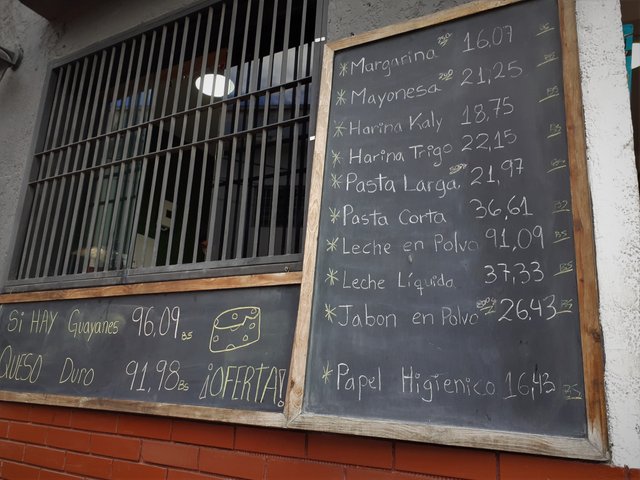 * Margarina 16,07 BS
* Mayonesa 21,25 BS
* Harina Kaly 18,75 BS
* Harina Trigo 22,15 BS
* Pasta Larga 21,97 BS
* Pasta Corta 36,61 BS
* Leche en Polvo 91,09 BS
* Leche Líquida 37,33 BS
* Jabon en Polvo 26,43 BS
* Papel Higienico 16,43 BS
Si HAY Guayanes 96,09 BS
QUESO Duro 91,98 BS ¡OFERTA!